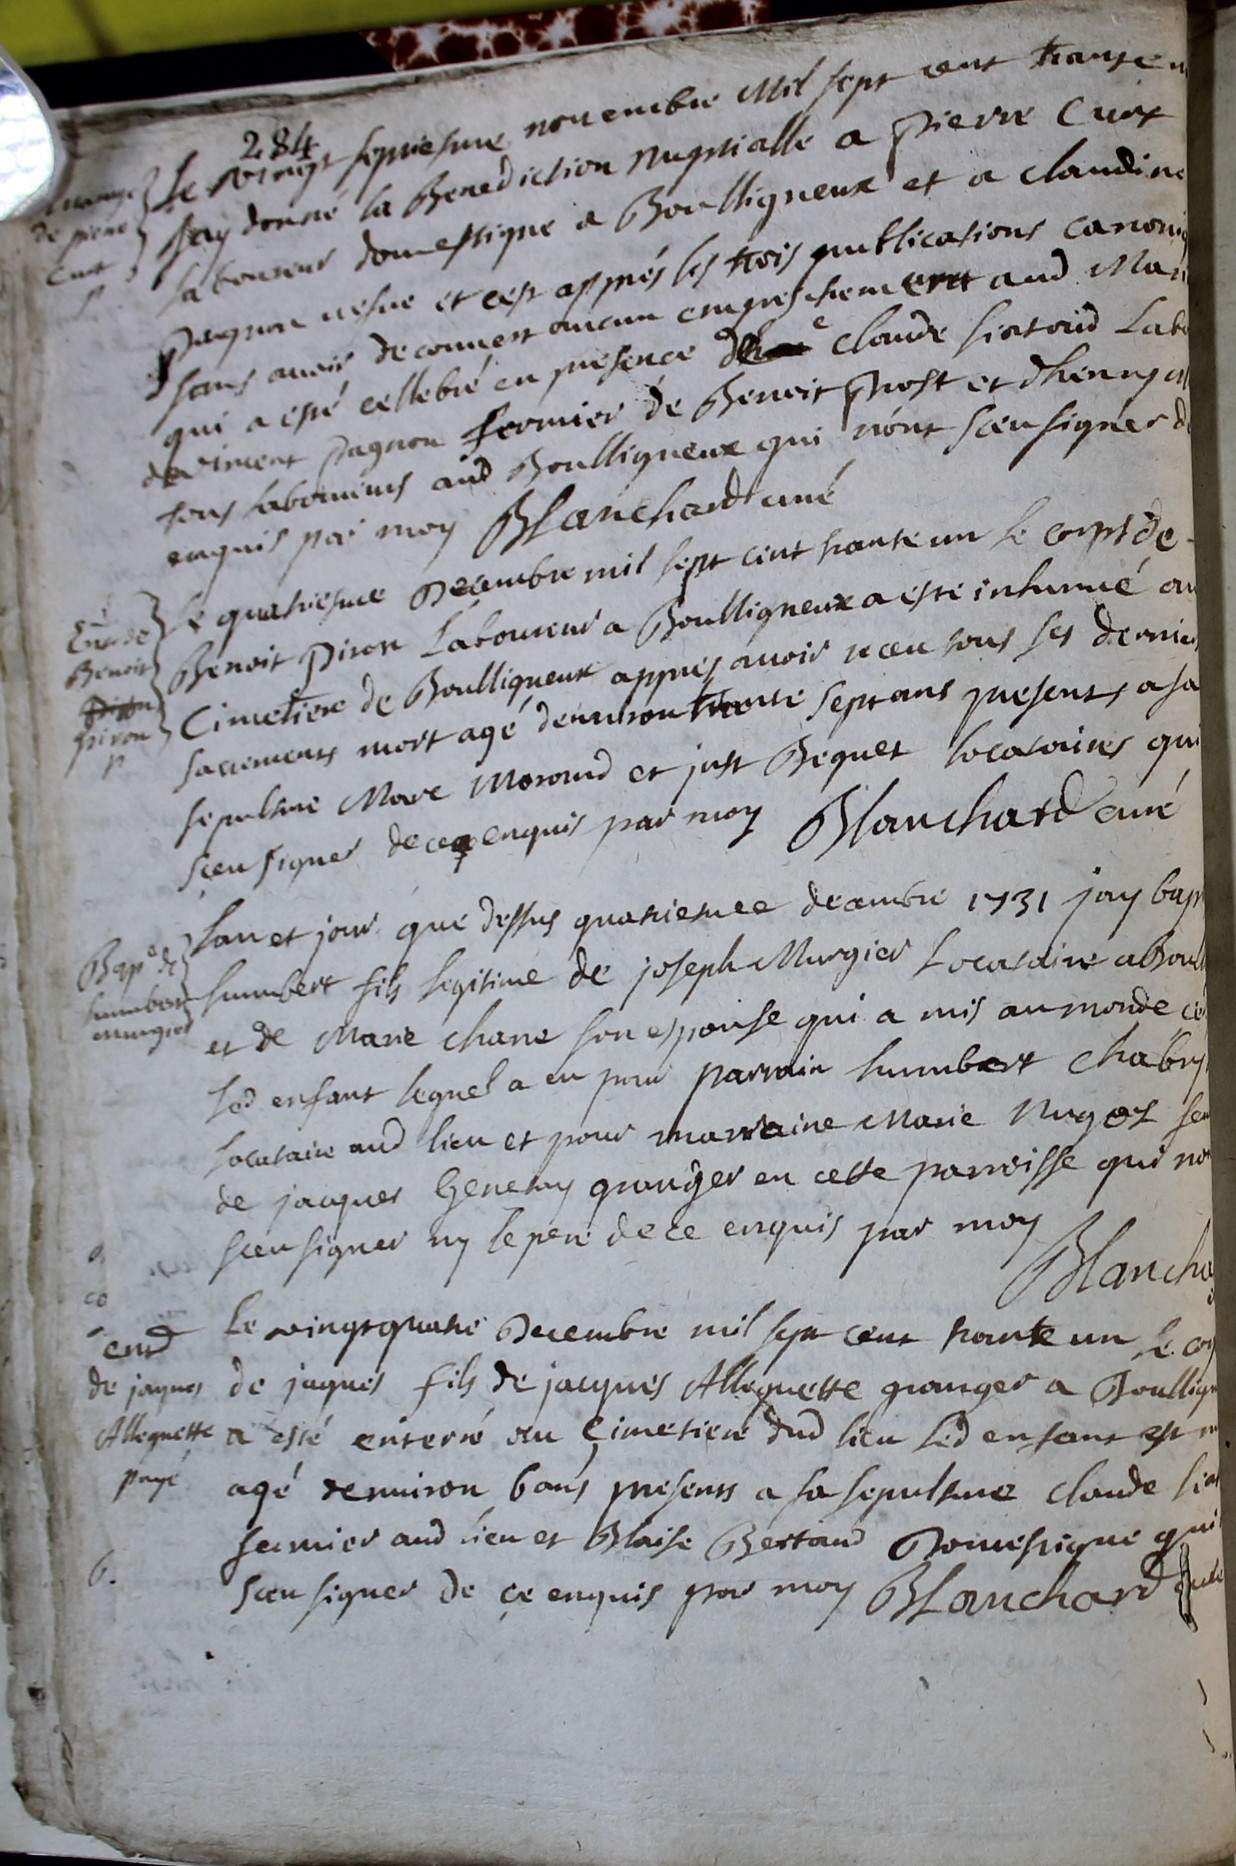 284
mariage
de pierre
Curt
Le vingt septiesme novembre Mil sept cent trante un
jay donné la Benediction nuptialle a Pierre Curt
laboureur domestique a Boulligneux et a claudine
Pagnon vesve et cest apprés les trois publications canoni
sans avoir decouvert aucun empeschement aud Mari
qui a esté cellebré en presence de claude Labo
de vincent pagnon fermier de Benoit Prost et dhenry
tous laboureurs aud Boulligneux qui nônt sceu signer de
enquis par moy Blanchard curé
Benoit
piron
Le quatriesme Decembre mil sept cent trante un le corps de
Benoit Piron Laboureur a Boulligneux a esté inhumé au
Cimetiere de Boulligneux apprés avoir receu tous ses dernies
sacrements mort agé denviron trante sept ans presents a sa
sepulture Marc Morand et just Bequet locataires qui
sceu signer de ce enquis par moy Blanchard curé
Bap de
humbert
murgier
Lan et jour que dessus quatriesme decembre 1731 jay bap
humbert fils legitime de joseph Murgier Locataire a Boull
et de Marie chane son espouse qui a mis au monde
led enfant lequel a eu pour parrain humbert Chabry
locataire aud lieu et pour marraine Marie
de jacques Genevay granger en cette parroisse qui non
sceu signer ny le pere de ce enquis par moy
Blancha
ent
de jaques
Alloquette
payé
Le vingt quatre Decembre mil sept cent trante un le cor
de jaques fils de jacques Alloquette granger a Boullign
a esté enterré au Cimetiere dud lieu led enfant est m
agé denviron 6 ans presents a sa sepulture claude
fermier aud lieu et Blaise Bertaud Domestique qui
sceu signer de ce enquis par moy Blanchard curé
6.